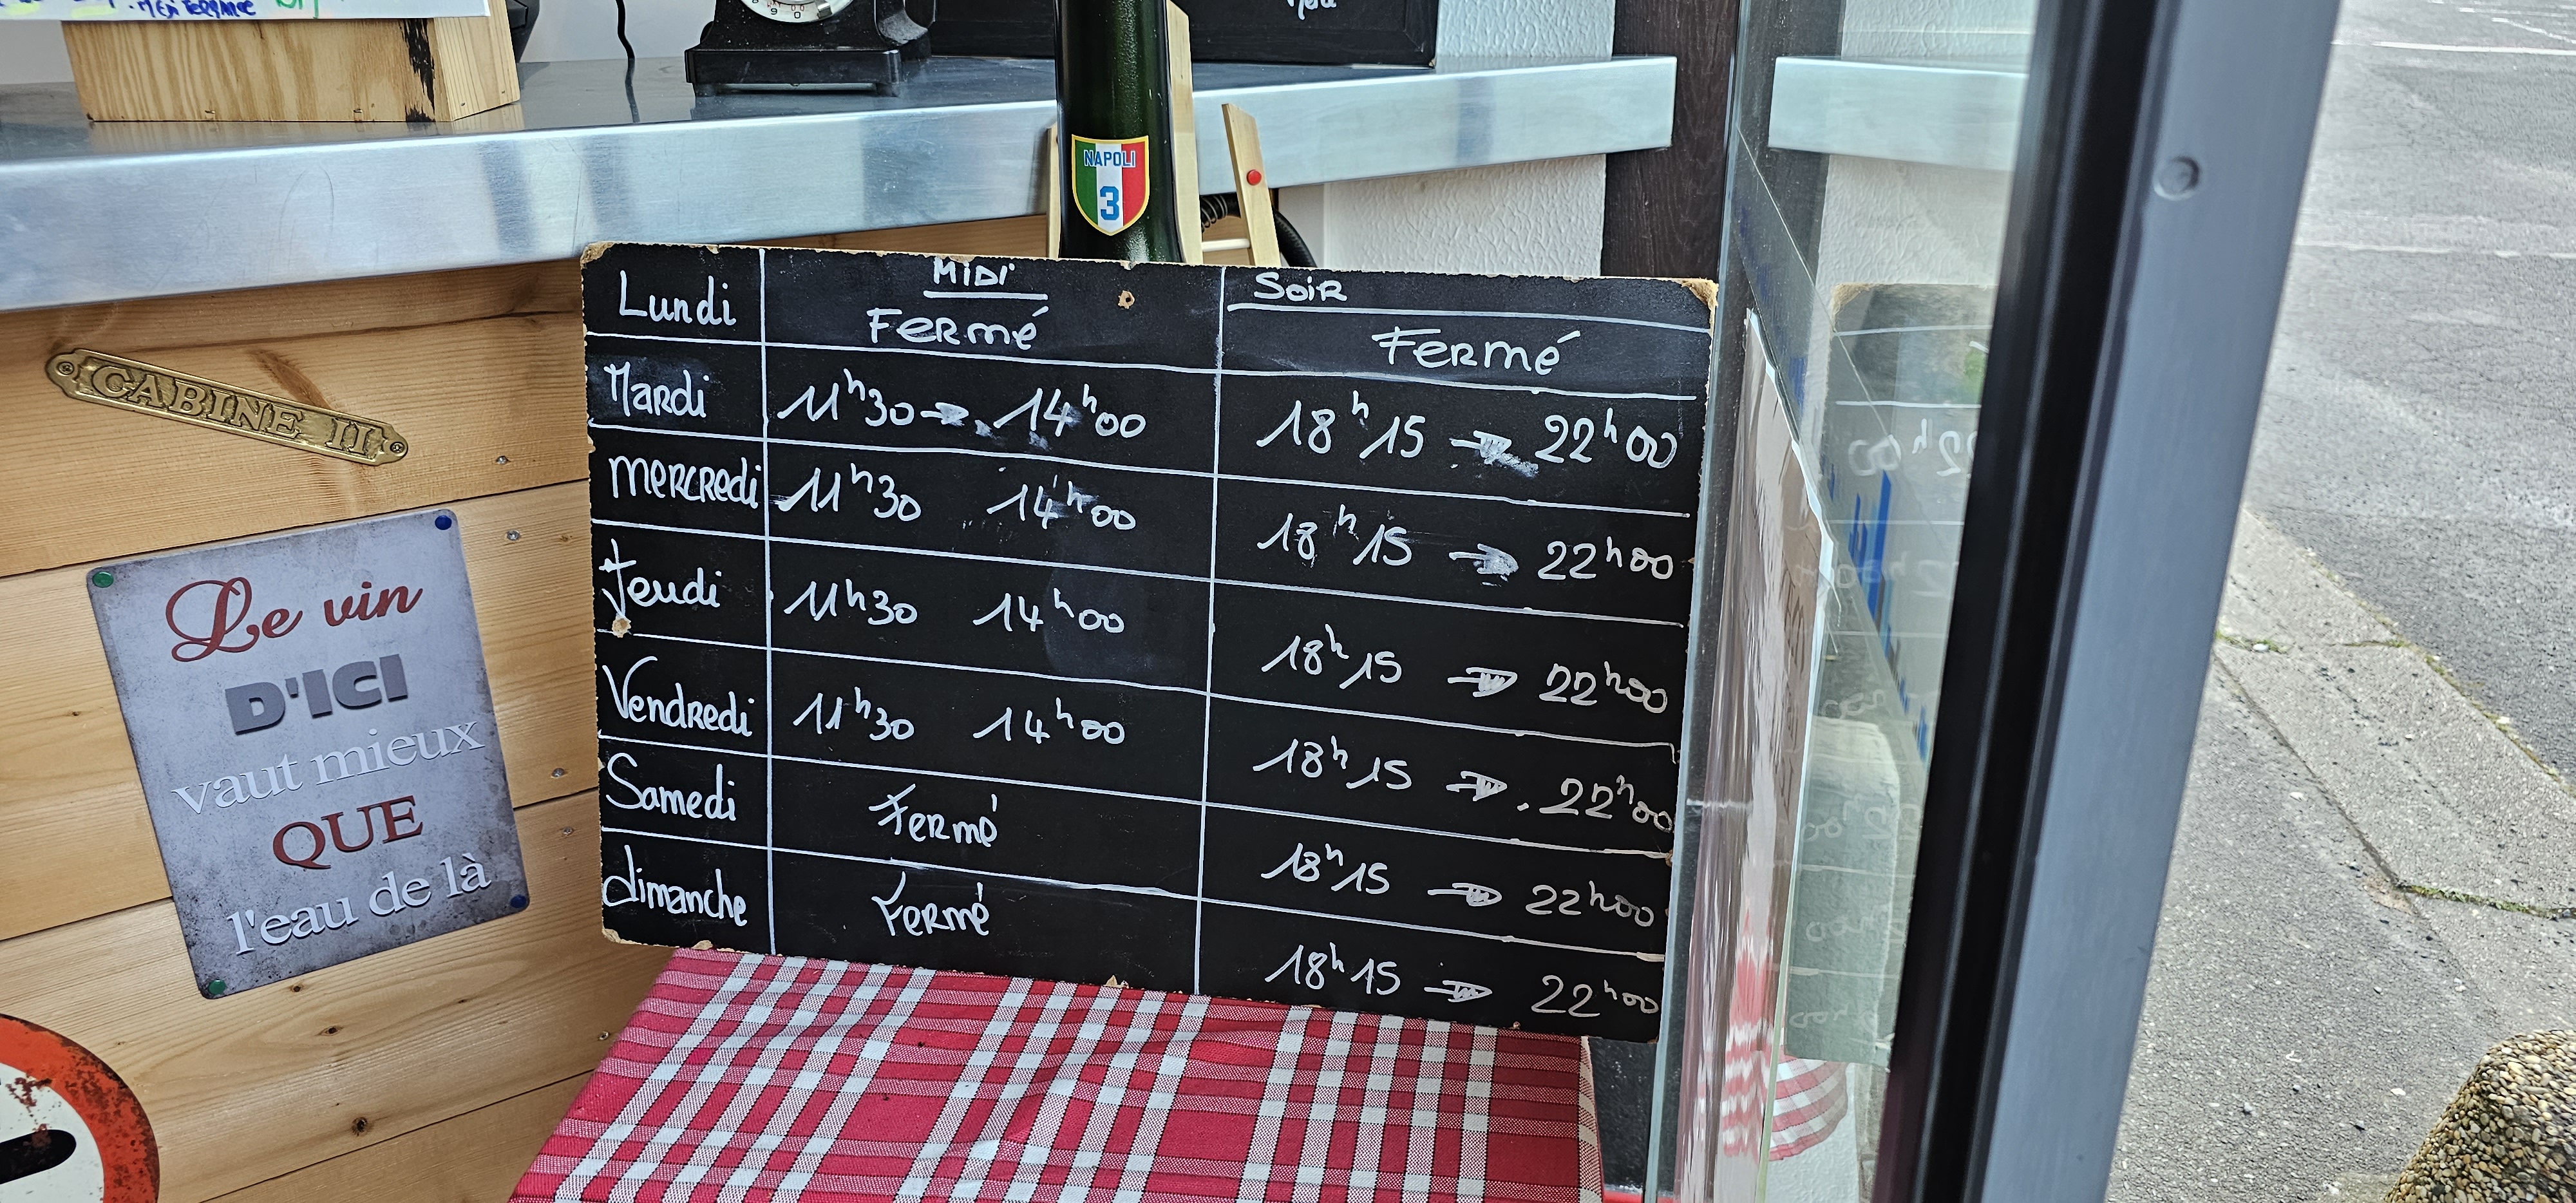 NAPOLI
3
CABINE II
Le vin
D'ICI
vaut mieux
QUE
l'eau de là
MIDI SOIR
Lundi Fermé Fermé
Mardi 11h30 → 14h00 18h15 → 22h00
mercredi 11h30 14h00 18h15 → 22h00
Jeudi 11h30 14h00 18h15 → 22h00
Vendredi 11h30 14h00 18h15 → 22h00
Samedi Fermé 18h15 → 22h00
dimanche Fermé 18h15 → 22h00